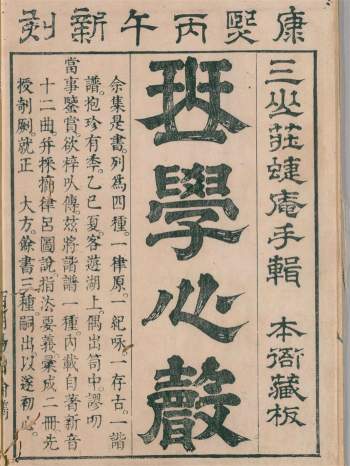 康熙丙午新刻
三山莊蜨庵手輯 本衙藏板
珡學心聲
余集是書。列爲四種。一律原。一紀咏。一存古。一諧
譜。抱珍有季。乙巳夏。客遊湖上。偶出笥中。謬叨
當事鑒賞欲梓以傳。茲將諧譜一種內載自著新音
十二曲并採摭律呂圖說。指法要義彙成二冊先
授剞劂。就正 大方。餘書三種嗣出以遂初